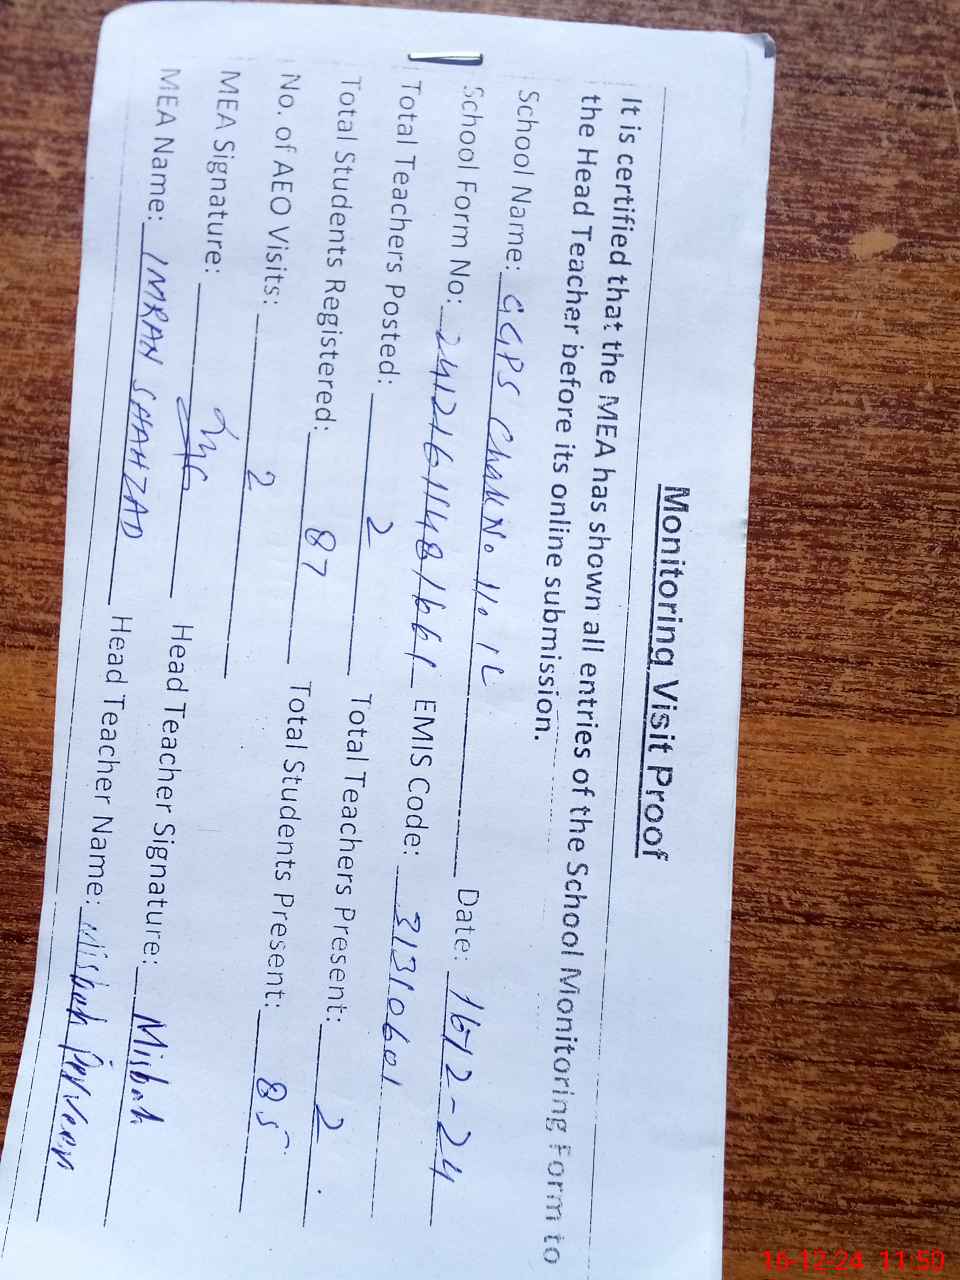 Monitoring Visit Proof
It is certified that the MEA has shown all entries of the School Monitoring Form to
the Head Teacher before its online submission.
School Name: GGPS Chak No 11.1L Date: 16-12-24
School Form No: EMIS Code: 31310601
Total Teachers Posted: 2 Total Teachers Present: 2
Total Students Registered: 87 Total Students Present: 85
No. of AEO Visits: 2
MEA Signature: Head Teacher Signature: Misbah
MEA Name: IMRAN SHAHZAD Head Teacher Name: Misbah Parveen
16-12-24 11:50